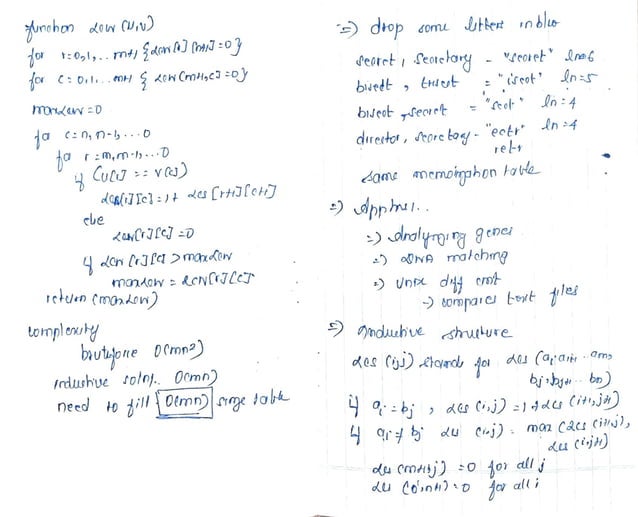 function LCW (U,V)
for r=0,1,.. m+1 {LCW[r][n+1]=0}
for c=0,1... n+1 { LCW[m+1,c]=0}
maxLCW=0
for c=n, n-1, ... 0
for r=m,m-1,...0
if (U[r] == V[c])
LCW[r][c]=1+ LCS[r+1][c+1]
else
LCW[r][c]=0
if LCW[r][c] > maxLCW
maxLCW = LCW[r][c]
return (maxLCW)
complexity
bruteforce O(mn²)
inductive soln.. O(mn)
need to fill O(mn) size table
=) drop some letters in b/w
secret, secretary - "secret" ln=6
bisect, trisect = "isect" ln=5
bisect, secret = "sect" ln=4
director, secretary - "ectr" ln=4
retr
same memoization table
=) App..
=) Analyzing genes
=) DNA matching
=) Unix diff cmd
-) compares text files
=) Inductive structure
LCS (i,j) stands for LCS (ai.ai+1 ... am, bj.bj+1... bn)
if ai=bj, LCS (i,j)=1+LCS (i+1,j+1)
if ai≠bj LCS (i,j) = max (LCS (i+1,j), LCS (i,j+1)
LCS (m+1,j) =0 for all j
LCS (i,n+1)=0 for all i